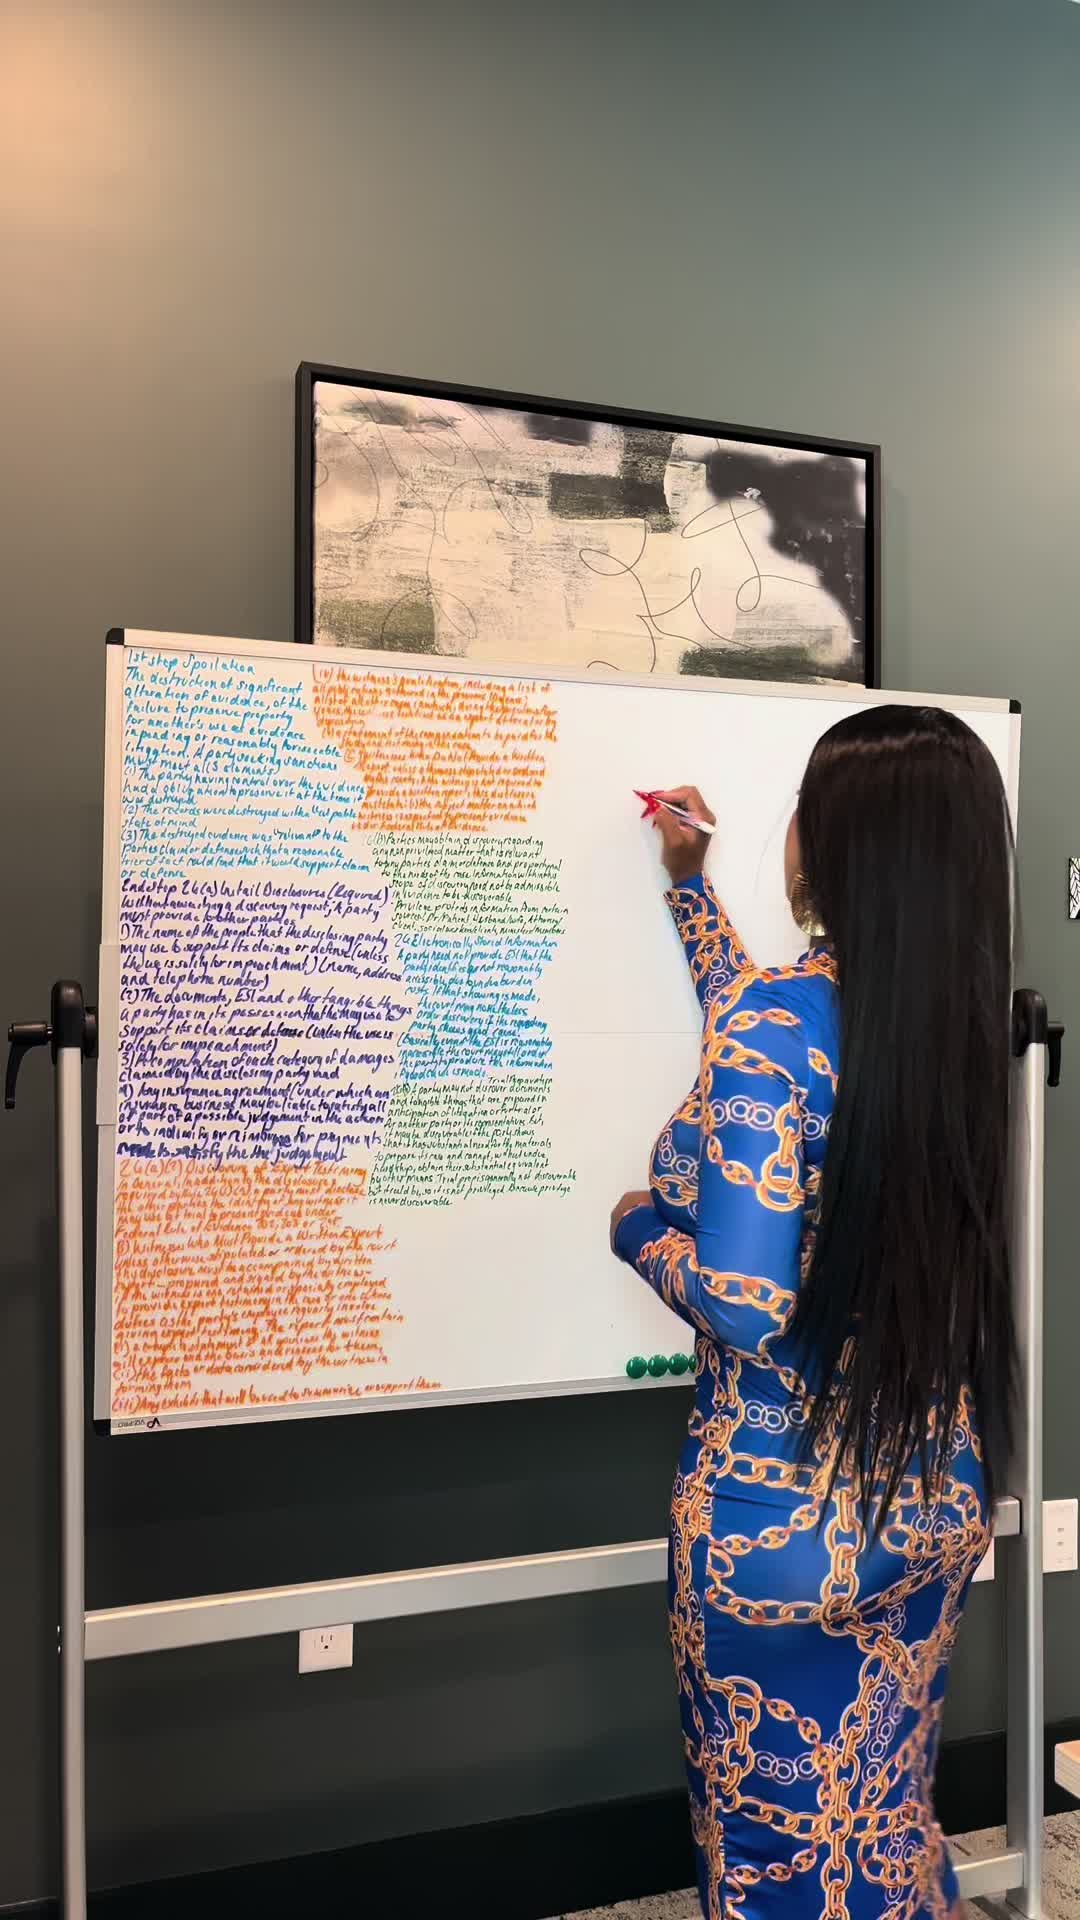 1st step Spoilation
The destruction of significant
alteration of evidence, of the
failure to preserve property
for another's use as evidence
in pending or reasonably foreseeable
litiggtion. A party seeking sanctions
must meet all (3 elements)
(1) The party having control over the evidence
had a obligation to preserve it at the time it
was destroyed
(2) The records were destroyed with a "culpable
state of mind
(3) The destroyed evidence was "relevant" to the
parties claim or defense such that a reasonable
trier of fact could find that it would support claim
or defense
2nd Step 26(a) Initail Disclosures (Required)
Without awaiting a discovery request, A party
must provide to other parties
1) The name of the people that the disclosing party
may use to support its claims or defense (unless
the use is solely for impeachment) (name, address
and telephone number)
(2) The documents, ESI and other tangible things
a party has in its possession that he may use to
support its claims or defense (unless the use is
solely for impeachment)
3) A computation of each category of damages
claimed by the disclosing party and
4) Any insurance agreement under which an
insurance business may be liable to satisfy all
or part of a possible judgement in the action
or to indimify or reimburse for payments
made to satisfy the the judgement
26(a)(2) Disclosure of Expert Testimony
In General, In addition to the disclosures
required by Rule 26(a)(1) a party must disclose
the other parties the identity of any witness it
may use at trial to present evidence under
Federal Rule of Evidence 702, 703 or 705
B) Witnesses Who Must Provide a Written Expert
unless otherwise stipulated or ordered by the court
this disclosure must be accompanied by written
report - prepared and signed by the witness -
if the witness is one retained or specially employed
to provide expert testimony in the case or one whose
duties as the party's employee regularly involve
giving expert testimony. The report must contain
(i) a complete statement of all opinions the witness
will express and the basis and reasons for them
(ii) the facts or data considered by the witness in
forming them
(iii) Any exhibits that will be used to summarize or support them
(iv) the witness's qualifications, including a list of
all publications authored in the previous
(v) a statement of the compensation to be paid for the
study and testimony in the case
(C) Witnesses Who Do Not Provide a Written
Report unless otherwise stipulated or ordered
by the court, if the witness is not required to
provide a written report, this disclosure
must state: (i) the subject matter on which
witness is expected to present evidence
under Federal Rule of Evidence
(b) Parties may obtain discovery regarding
any nonprivileged matter that is relevant
to any parties claim or defense and proportional
to the needs of the case. Information within this
scope of discovery need not be admissible
in evidence to be discoverable
Privilege protects information from certain
sources: Dr/Patient, Husband/wife, Attorney/
client, social worker/client, ministers/members
26 Electronically Stored Information
A party need not provide ESI that the
party identifies as not reasonably
accessible due to undue burden
costs. If that showing is made,
the court may nonetheless
order discovery if the requesting
party shows good cause.
(Basically even if the ESI is reasonably
inaccessible the court may still order
the party to produce the information
if good cause is made.
Trial Preparation
A party may not discover documents
and tangible things that are prepared in
anticipation of litigation or for trial or
for another party or its representatives. But,
it may be discoverable if the party shows
that it has substantial need for the materials
to prepare its case and cannot, without undue
hardship, obtain their substantial equivalent
by other means. Trial prep is generally not discoverable
but it could be, so it is not privileged. Because privilege
is never discoverable